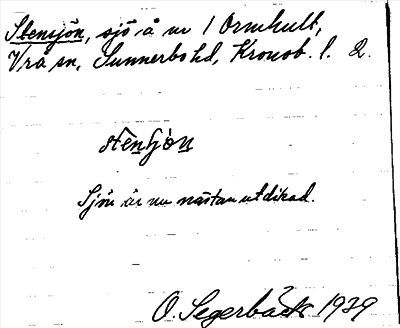 Stensjön, sjö å nr 1 Ormhult,
Vrå sn, Sunnerbo hd, Kronob. l. 2.
stènʃö̀n
Sjön är nu nästan utdikad.
O. Segerbäck 1929